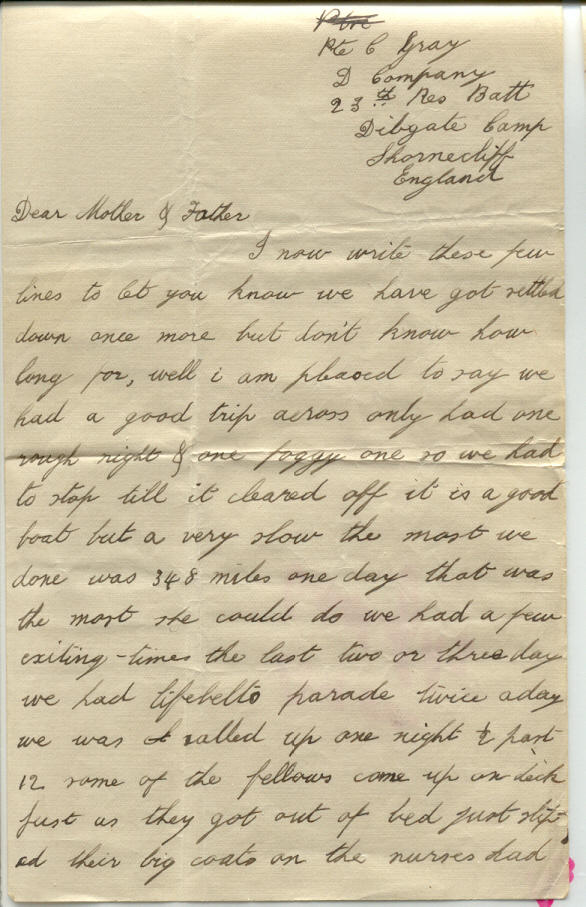 Pte C Gray
D Company
23rd Res Batt
Dibgate Camp
Shornecliff
England
Dear Mother & Father
I now write these few
lines to let you know we have got settled
down once more but don't know how
long for, well i am pleased to say we
had a good trip across only had one
rough night & one foggy one so we had
to stop till it cleared off it is a good
boat but a very slow the most we
done was 348 miles one day that was
the most she could do we had a few
exiting-times the last two or three day
we had lifebelts parade twice aday
we was called up one night ½ past
12 some of the fellows come up on deck
just as they got out of bed just slip-
ed their big coats on the nurses had